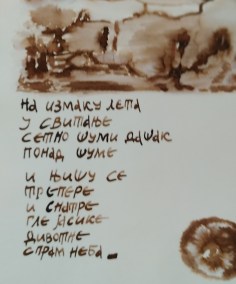 на измаку лета
у свитање
сетно шуми дашак
понад шуме
и њишу се
трепере
и
гле јасике
дивотне
спрам неба